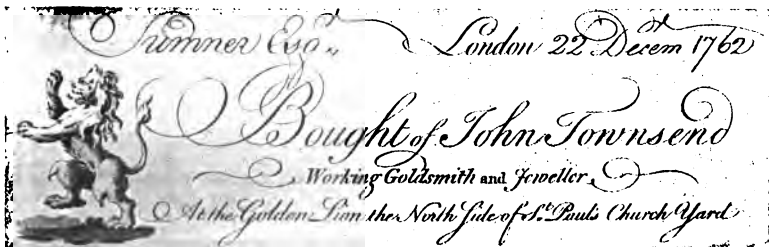 Sumner Esqr. London 22d Decem 1762
Bought of John Townsend
Working Goldsmith and Jeweller,
At the Golden Lion the North Side of St. Paul's Church Yard